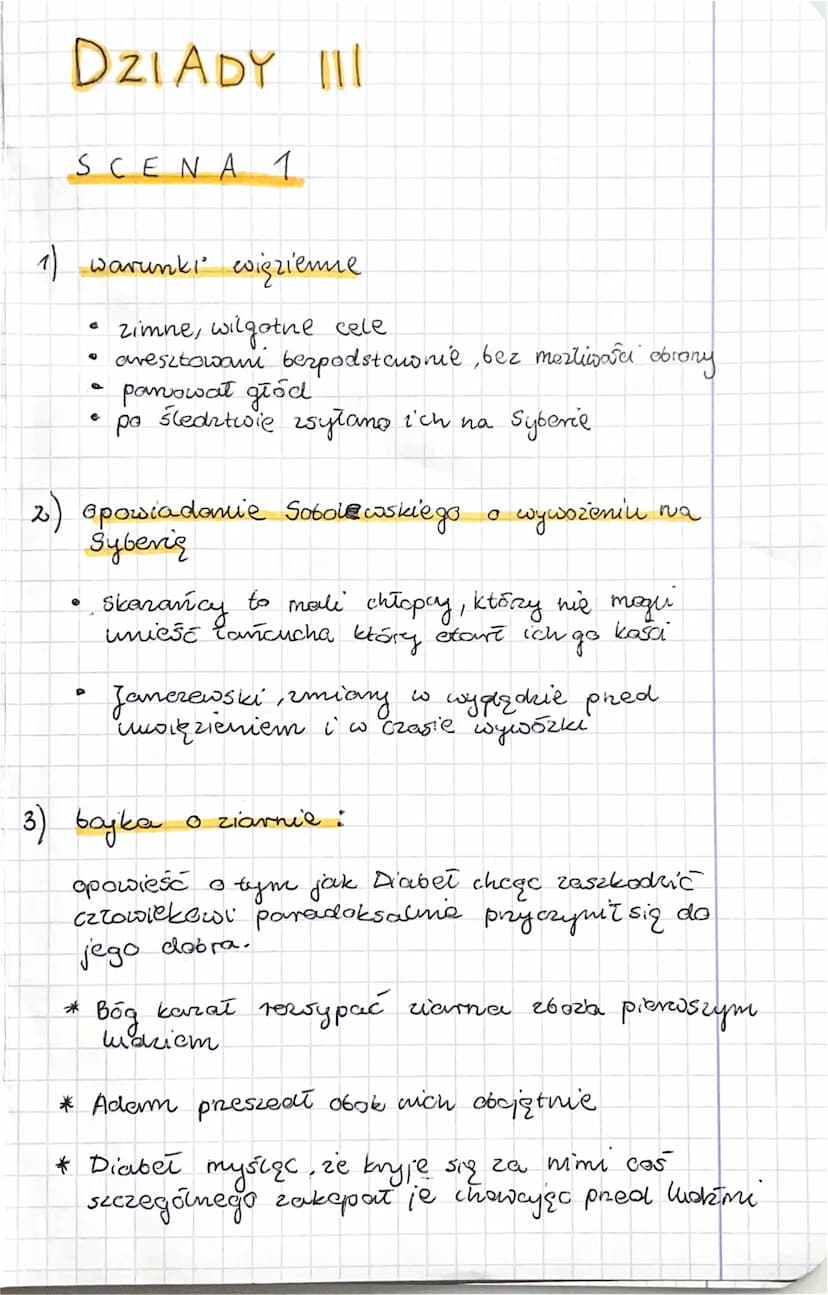 DZIADY III
SCENA 1
1) warunki więzienne
• zimne, wilgotne cele
• aresztowani bezpodstawnie, bez możliwości obrony
• panował głód
• po śledztwie zsyłano ich na Syberię
2) Opowiadanie Sobolewskiego o wywożeniu na
Syberię
• Skazańcy to mali chłopcy, którzy nie mogli
unieść łańcucha który otarł ich go kości
• Janczewski, zmiany w wyglądzie przed
uwięzieniem i w czasie wywózki
3) bajka o ziarnie:
opowieść o tym jak Diabeł chcąc zaszkodzić
człowiekowi paradoksalnie przyczynił się do
jego dobra.
* Bóg kazał rozsypać ziarna zboża pierwszym
ludziom
* Adam przeszedł obok nich obojętnie
* Diabeł myśląc, że kryje się za nimi coś
szczególnego zakopał je chowając przed ludźmi